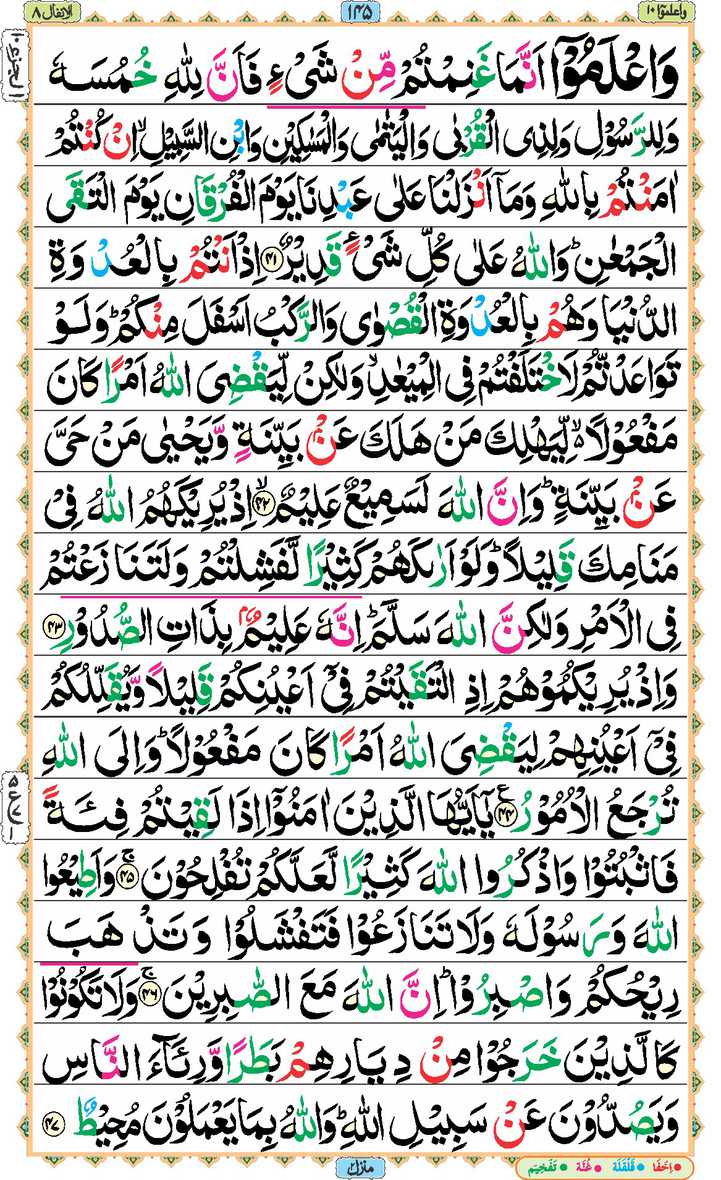 واعلموٓا ١٠
١٤٥
الانفال ٨
الجزء ١٠
وَاعْلَمُوْٓا اَنَّمَا غَنِمْتُمْ مِّنْ شَیْءٍ فَاَنَّ لِلّٰهِ خُمُسَهٗ
وَلِلرَّسُوْلِ وَلِذِی الْقُرْبٰی وَالْیَتٰمٰی وَالْمَسٰكِیْنِ وَابْنِ السَّبِیْلِ ۙ اِنْ كُنْتُمْ
اٰمَنْتُمْ بِاللّٰهِ وَمَاۤ اَنْزَلْنَا عَلٰی عَبْدِنَا یَوْمَ الْفُرْقَانِ یَوْمَ الْتَقَی
الْجَمْعٰنِ ؕ وَاللّٰهُ عَلٰی كُلِّ شَیْءٍ قَدِیْرٌ ۴۱ اِذْ اَنْتُمْ بِالْعُدْوَةِ
الدُّنْیَا وَهُمْ بِالْعُدْوَةِ الْقُصْوٰی وَالرَّكْبُ اَسْفَلَ مِنْكُمْ ؕ وَلَوْ
تَوَاعَدْتُّمْ لَاخْتَلَفْتُمْ فِی الْمِیْعٰدِ ۙ وَلٰكِنْ لِّیَقْضِیَ اللّٰهُ اَمْرًا كَانَ
مَفْعُوْلًا ۙ۬ لِّیَهْلِكَ مَنْ هَلَكَ عَنْۢ بَیِّنَةٍ وَّیَحْیٰی مَنْ حَیَّ
عَنْۢ بَیِّنَةٍ ؕ وَاِنَّ اللّٰهَ لَسَمِیْعٌ عَلِیْمٌ ۙ ۴۲ اِذْ یُرِیْكَهُمُ اللّٰهُ فِیْ
مَنَامِكَ قَلِیْلًا ؕ وَلَوْ اَرٰىكَهُمْ كَثِیْرًا لَّفَشِلْتُمْ وَلَتَنَازَعْتُمْ
فِی الْاَمْرِ وَلٰكِنَّ اللّٰهَ سَلَّمَ ؕ اِنَّهٗ عَلِیْمٌۢ بِذَاتِ الصُّدُوْرِ ۴۳
وَاِذْ یُرِیْكُمُوْهُمْ اِذِ الْتَقَیْتُمْ فِیْۤ اَعْیُنِكُمْ قَلِیْلًا وَّیُقَلِّلُكُمْ
فِیْۤ اَعْیُنِهِمْ لِیَقْضِیَ اللّٰهُ اَمْرًا كَانَ مَفْعُوْلًا ؕ وَاِلَی اللّٰهِ
تُرْجَعُ الْاُمُوْرُ ۴۴ یٰۤاَیُّهَا الَّذِیْنَ اٰمَنُوْۤا اِذَا لَقِیْتُمْ فِئَةً
فَاثْبُتُوْا وَاذْكُرُوا اللّٰهَ كَثِیْرًا لَّعَلَّكُمْ تُفْلِحُوْنَ ۚ ۴۵ وَاَطِیْعُوا
اللّٰهَ وَرَسُوْلَهٗ وَلَا تَنَازَعُوْا فَتَفْشَلُوْا وَتَذْهَبَ
رِیْحُكُمْ وَاصْبِرُوْا ؕ اِنَّ اللّٰهَ مَعَ الصّٰبِرِیْنَ ۚ ۴۶ وَلَا تَكُوْنُوْا
كَالَّذِیْنَ خَرَجُوْا مِنْ دِیَارِهِمْ بَطَرًا وَّرِئَآءَ النَّاسِ
وَیَصُدُّوْنَ عَنْ سَبِیْلِ اللّٰهِ ؕ وَاللّٰهُ بِمَا یَعْمَلُوْنَ مُحِیْطٌ ۴۷
منزل ٢
اخفا قلقلة غنّة تفخیم